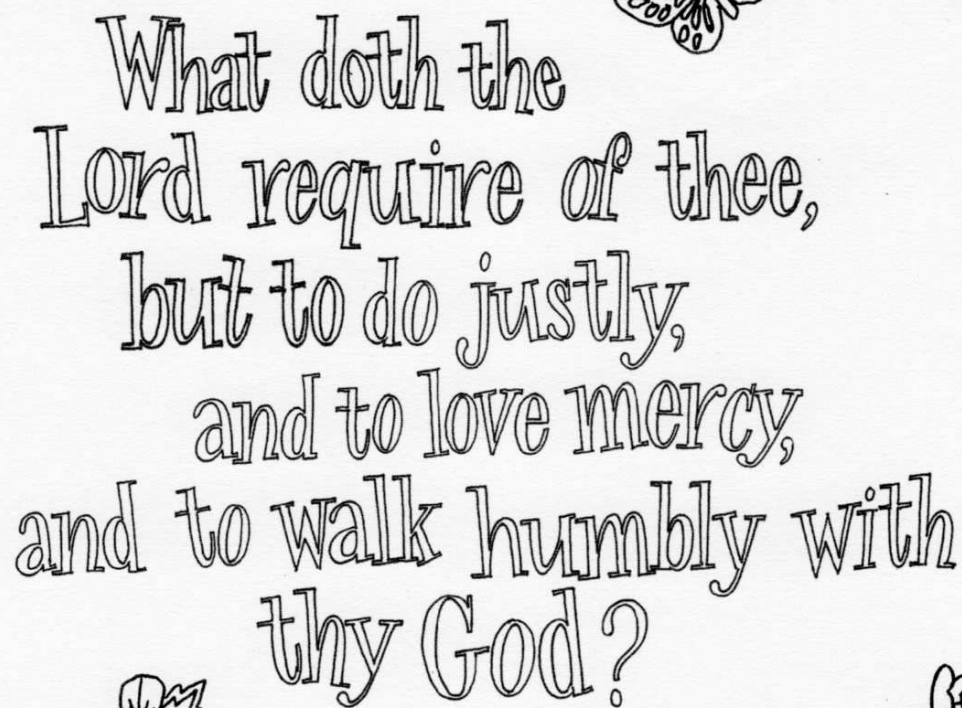 What doth the
Lord require of thee,
but to do justly,
and to love mercy,
and to walk humbly with
thy God?